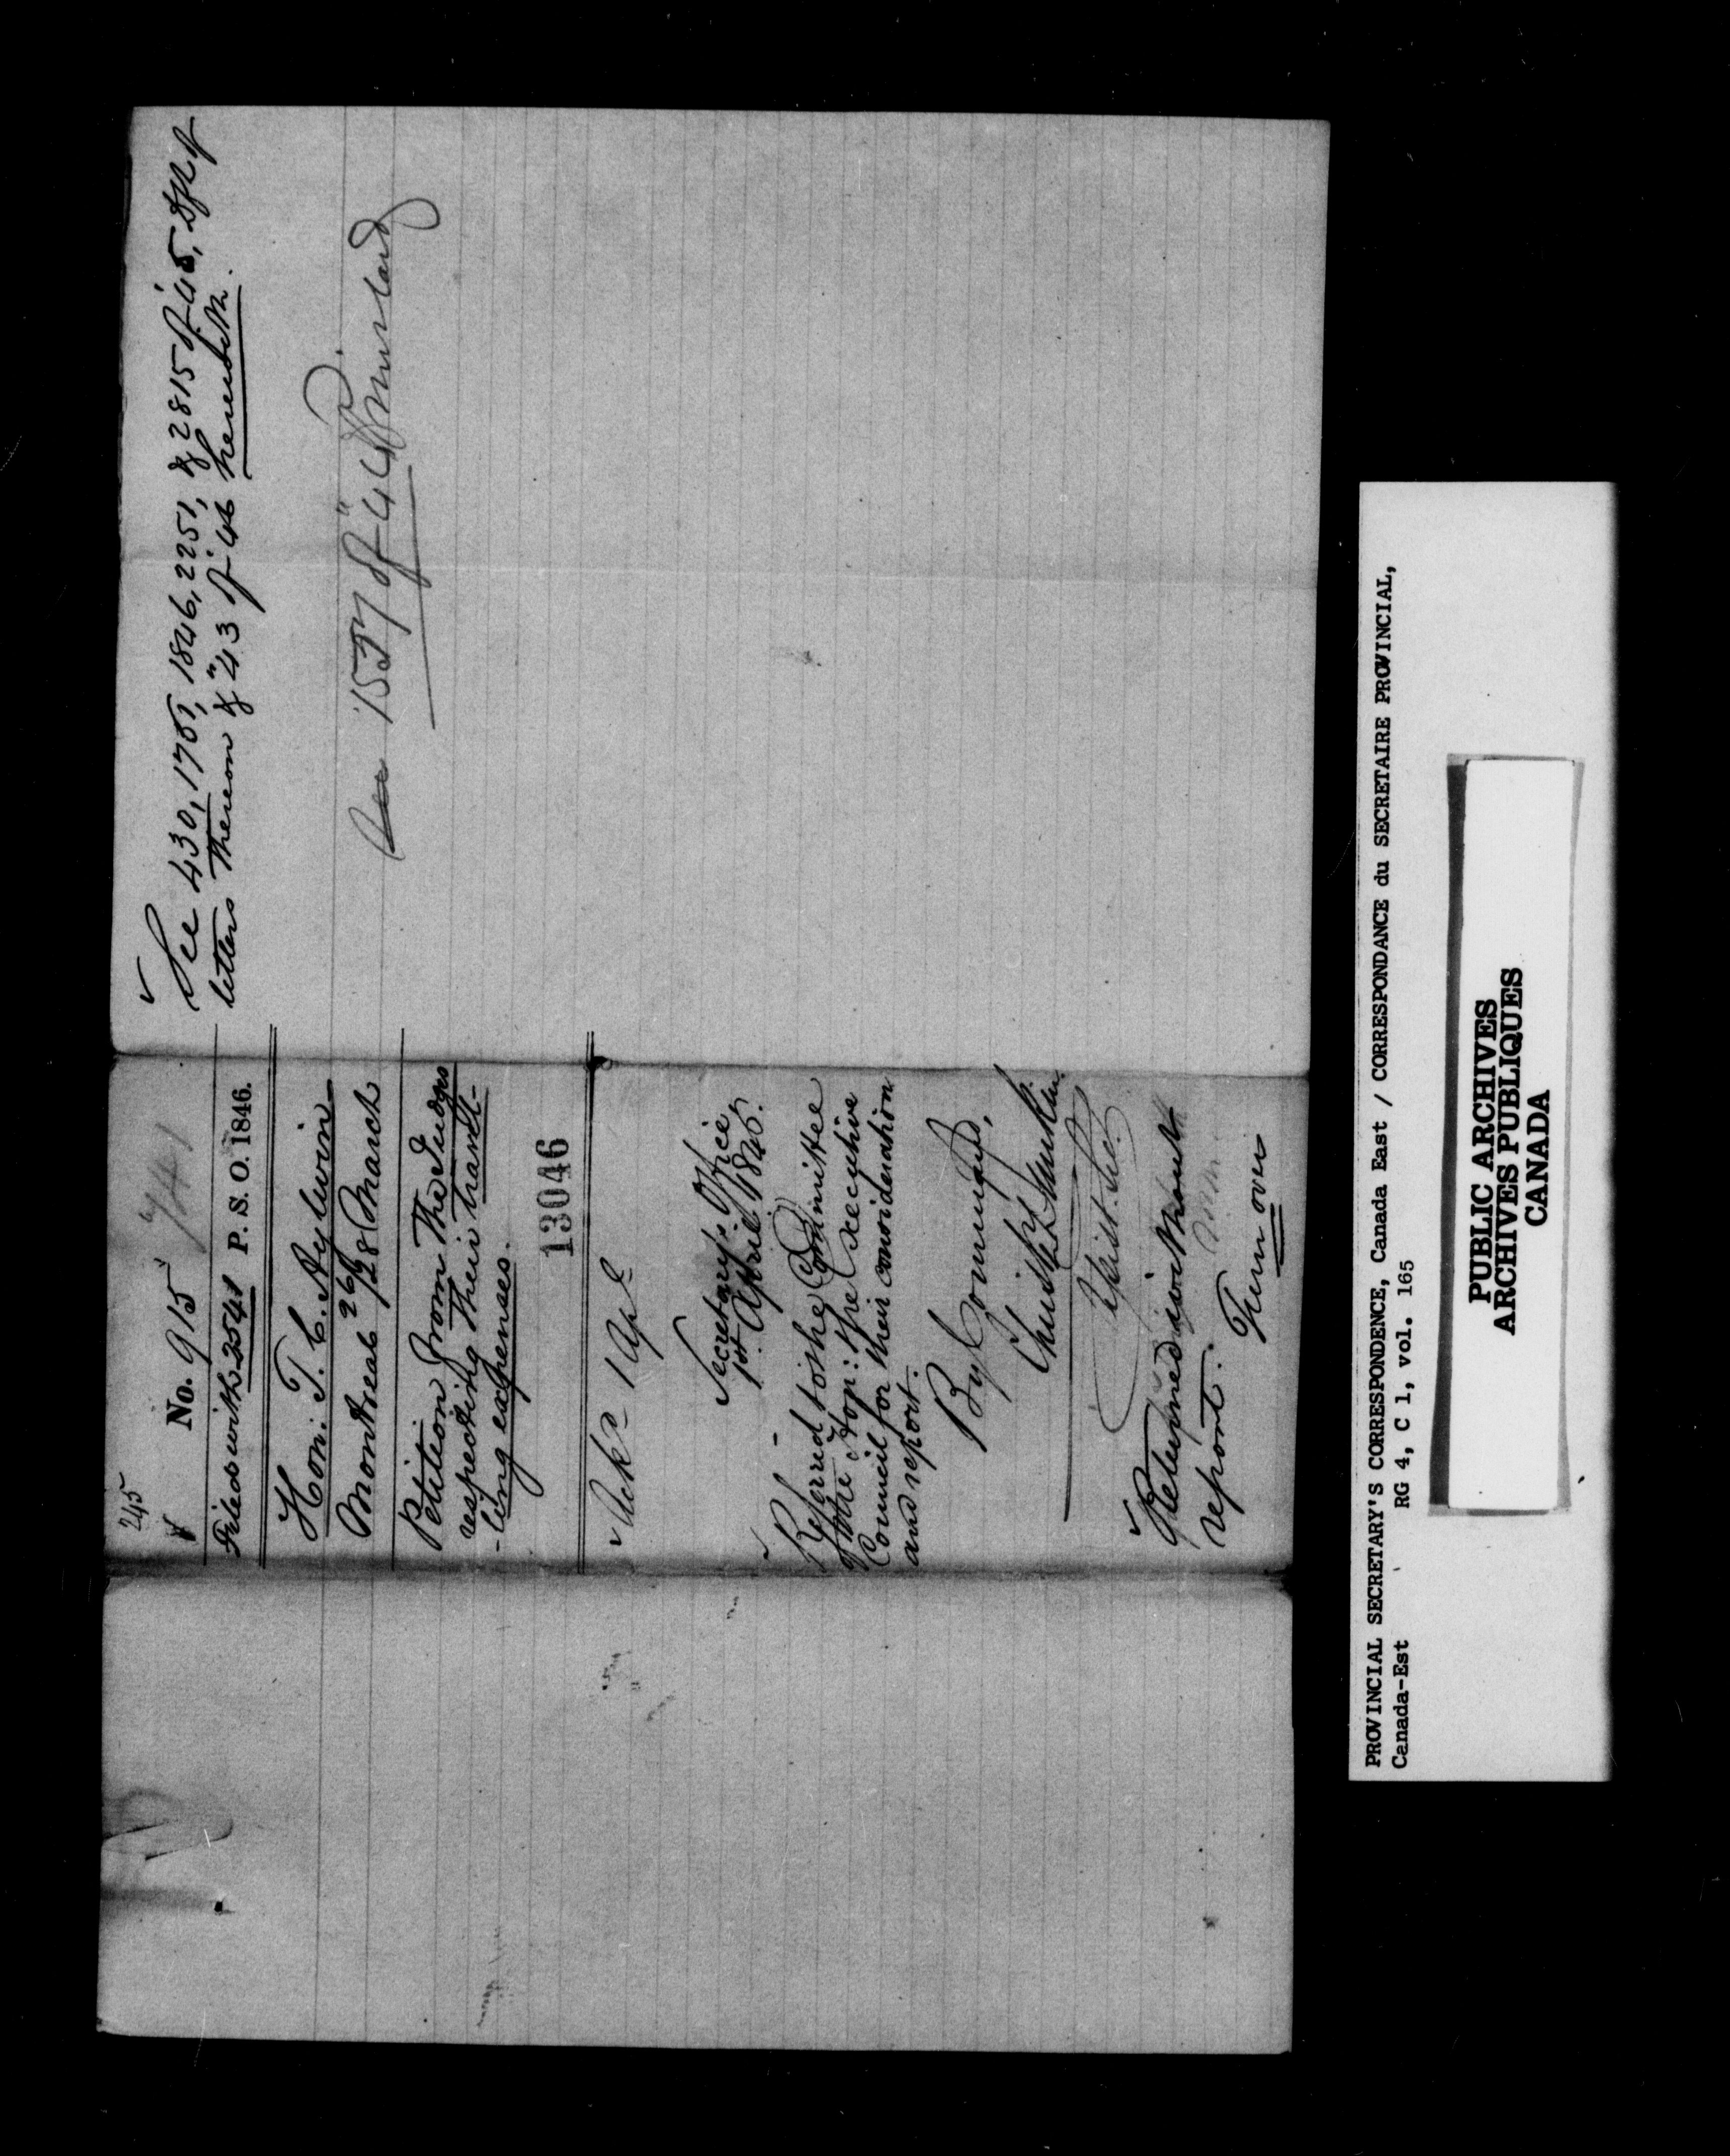 245
No. 915
741
Filed with 2541 P. S. O. 1846.
Hon: T. C. Aylwin
Montreal 26/28 March
Petition from The Judges
respecting Their travel-
-ling expenses.
13046
Ackd 1 Apl
Secretary's Office
1st April 1846.
Referred to the Committee
of the Hon: the Executive
Council for their consideration
and report.
By Command,
Assist. Sec.
Returned without
report.
Turn over
See 430, 1751, 1846, 2251, & 2815 of '45,
letters thereon & "43 of '46 herewith.
See 1557 of "44
PROVINCIAL SECRETARY'S CORRESPONDENCE, Canada East / CORRESPONDANCE du SECRETAIRE PROVINCIAL,
Canada-Est RG 4, C 1, vol. 165
PUBLIC ARCHIVES
ARCHIVES PUBLIQUES
CANADA